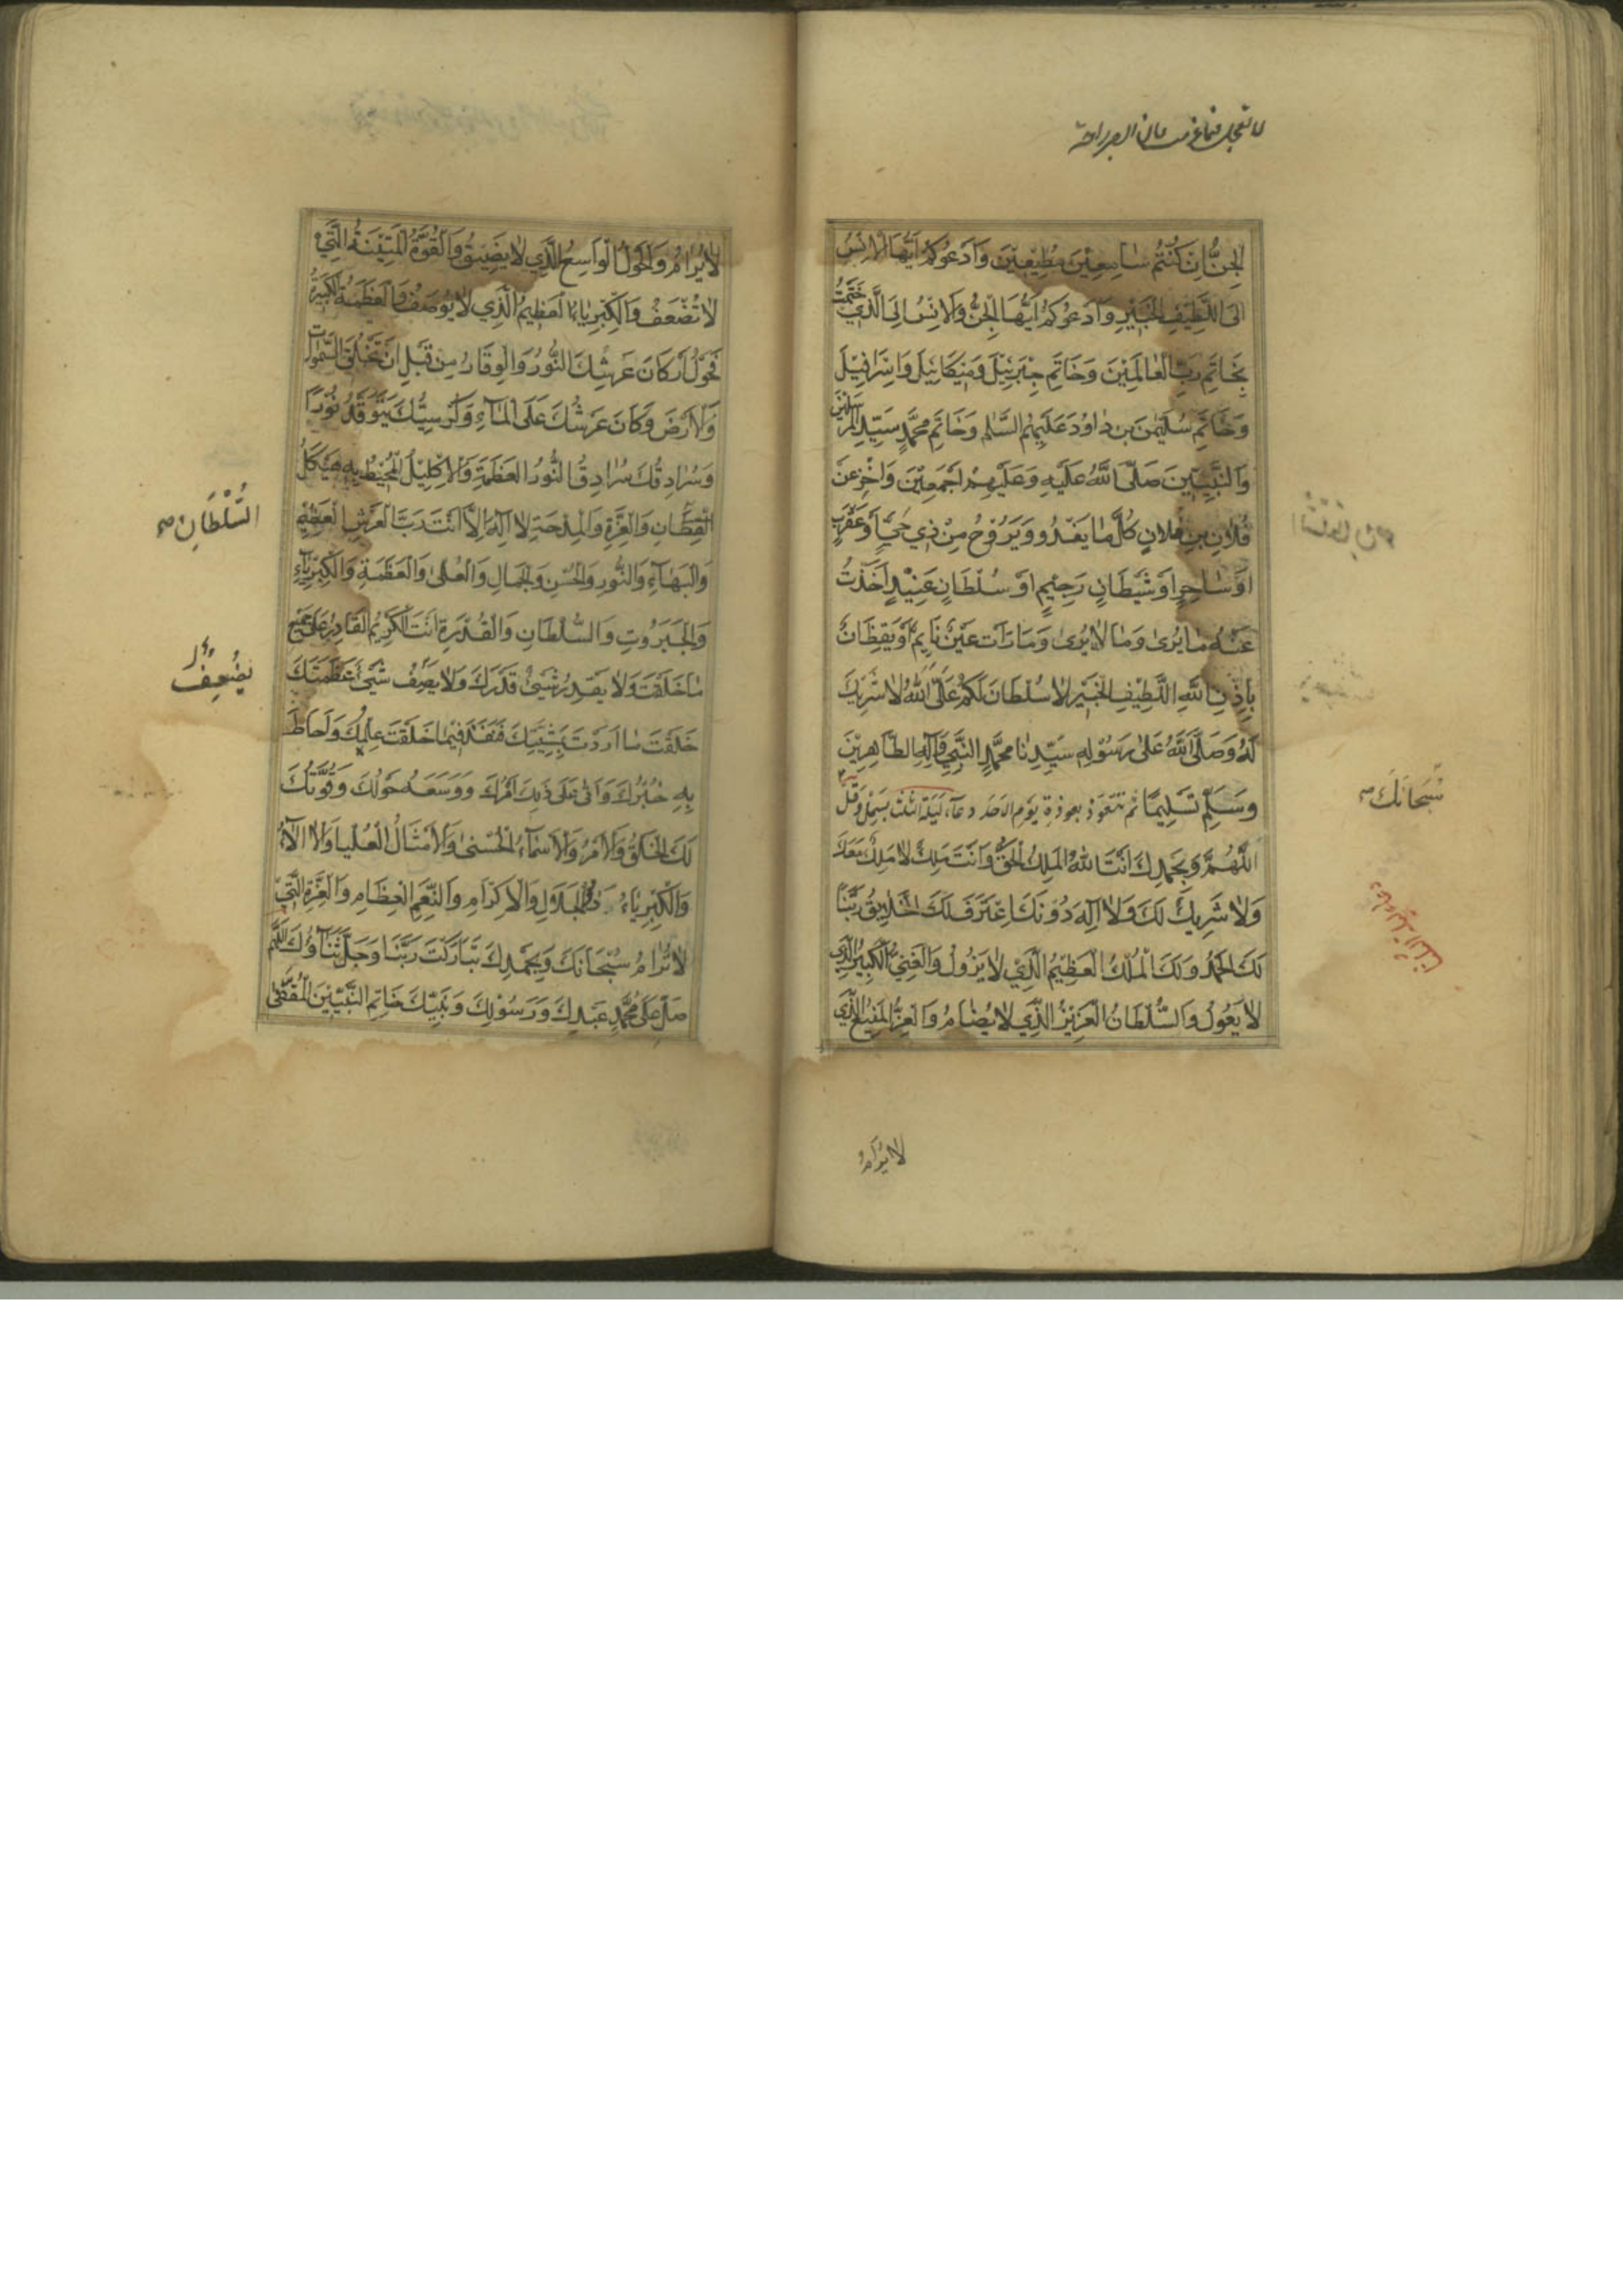 الْجِنُّ اِنْ كُنْتُمْ سٰامِعِيْنَ مُطِيْعِيْنَ وَاَدْعُوكُمْ اَيُّهَا الْاِنْسُ
اِلَى اللَّطِيْفِ الْخَبِيْرِ وَاَدْعُوكُمْ اَيُّهَا الْجِنُّ وَالْاِنْسُ اِلَى الَّذِيْ خَتَمْتُ
بِخٰاتَمِ رَبِّ الْعٰالَمِيْنَ وَخٰاتَمِ جِبْرَئِيْلَ وَمِيْكٰائِيْلَ وَاِسْرٰافِيْلَ
وَخٰاتَمِ سُلَيْمٰنَ بْنِ دٰاوُدَ عَلَيْهِمُ السَّلٰمُ وَخٰاتَمِ مُحَمَّدٍ سَيِّدِ الْمُرْسَلِيْنَ
وَالنَّبِيِّيْنَ صَلَّى اللّٰهُ عَلَيْهِ وَعَلَيْهِمْ اَجْمَعِيْنَ وَاُخْرِ عَنْ
فُلٰانِ بْنِ فُلٰانٍ كُلَّ مٰا يَغْدُو وَيَرُوْحُ مِنْ ذِي حَيٍّ اَوْ عَقْرَبٍ
اَوْ سٰاحِرٍ اَوْ شَيْطٰانٍ رَجِيْمٍ اَوْ سُلْطٰانٍ عَنِيْدٍ اَخَذْتُ
عَنْهُ مٰا يُرٰى وَمٰا لٰا يُرٰى وَمٰا رَاَتْ عَيْنُ نٰايِمٍ اَوْ يَقْظٰانَ
بِاِذْنِ اللّٰهِ اللَّطِيْفِ الْخَبِيْرِ لٰا سُلْطٰانَ لَكُمْ عَلَى اللّٰهِ لٰا شَرِيْكَ
لَهُ وَصَلَّى اللّٰهُ عَلٰى رَسُوْلِهِ سَيِّدِنٰا مُحَمَّدٍ النَّبِيِّ وَاٰلِهِ الطّٰاهِرِيْنَ
وَسَلَّمَ تَسْلِيْمًا ثم تتعوذ بعوذة يوم الاحد دعاء ليلة اثنين بسمل وقل
اَللّٰهُمَّ وَبِحَمْدِكَ اَنْتَ اللّٰهُ الْمَلِكُ الْحَقُّ وَاَنْتَ مَلِكٌ لٰا مَلِكَ مَعَكَ
وَلٰا شَرِيْكَ لَكَ وَلٰا اِلٰهَ دُوْنَكَ اِعْتَرَفَ لَكَ الْخَلٰايِقُ رَبَّنٰا
لَكَ الْحَمْدُ وَلَكَ الْمُلْكُ الْعَظِيْمُ الَّذِيْ لٰا يَزُوْلُ وَالْغِنَى الْكَبِيْرُ الَّذِي
لٰا يَعُوْلُ وَالسُّلْطٰانُ الْعَزِيْزُ الَّذِي لٰا يُضٰامُ وَالْعِزُّ الْمَنِيْعُ الَّذِي
سُبْحٰانَكَ
لا يرام
لٰا يُرٰامُ وَالْحَوْلُ الْوٰاسِعُ الَّذِي لٰا يَضِيْقُ وَالْقُوَّةُ الْمَتِيْنَةُ الَّتِيْ
لٰا تُضْعَفُ وَالْكِبْرِيٰاءُ الْعَظِيْمُ الَّذِي لٰا يُوْصَفُ وَالْعَظَمَةُ الْكَبِيْرَةُ
فَحَوْلَ اَرْكٰانِ عَرْشِكَ النُّوْرُ وَالْوَقٰارُ مِنْ قَبْلِ اَنْ تَخْلُقَ السَّمٰوٰاتِ
وَالْاَرْضَ وَكٰانَ عَرْشُكَ عَلَى الْمٰاءِ وَكُرْسِيُّكَ يَتَوَقَّدُ نُوْرًا
وَسُرٰادِقُكَ سُرٰادِقُ النُّوْرِ الْعَظَمَةِ وَالْاِكْلِيْلُ الْمُحِيْطُ بِهِ هَيْكَلُ
السُّلْطٰانِ وَالْعِزَّةِ وَالْمِدْحَةِ لٰا اِلٰهَ اِلَّا اَنْتَ رَبُّ الْعَرْشِ الْعَظِيْمِ
وَالْبَهٰاءِ وَالنُّوْرِ وَالْحُسْنِ وَالْجَمٰالِ وَالْعُلٰى وَالْعَظَمَةِ وَالْكِبْرِيٰاءِ
وَالْجَبَرُوْتِ وَالسُّلْطٰانِ وَالْقُدْرَةِ اَنْتَ الْكَرِيْمُ الْقٰادِرُ عَلٰى جَمِيْعِ
مٰا خَلَقْتَ وَلٰا يَقْدِرُ شَيْءٌ قَدْرَكَ وَلٰا يَصِفُ شَيْءٌ عَظَمَتَكَ
خَلَقْتَ مٰا اَرَدْتَ بِمَشِيَّتِكَ فَنَفَذَ فِيْمٰا خَلَقْتَ عِلْمُكَ وَاَحٰاطَ
بِهِ خُبْرُكَ وَاَتٰى عَلٰى ذٰلِكَ اَمْرُكَ وَوَسِعَهُ حَوْلُكَ وَقُوَّتُكَ
لَكَ الْخَلْقُ وَالْاَمْرُ وَالْاَسْمٰاءُ الْحُسْنٰى وَالْاَمْثٰالُ الْعُلْيٰا وَالْاٰلٰاءُ
وَالْكِبْرِيٰاءُ ذُو الْجَلٰالِ وَالْاِكْرٰامِ وَالنِّعَمِ الْعِظٰامِ وَالْعِزَّةِ الَّتِيْ
لٰا تُرٰامُ سُبْحٰانَكَ وَبِحَمْدِكَ تَبٰارَكْتَ رَبَّنٰا وَجَلَّ ثَنٰاؤُكَ اَللّٰهُمَّ
صَلِّ عَلٰى مُحَمَّدٍ عَبْدِكَ وَرَسُوْلِكَ وَنَبِيِّكَ خٰاتَمِ النَّبِيِّيْنَ الْمُقَفّٰى
السُّلْطٰانِ
يُضْعِفُ